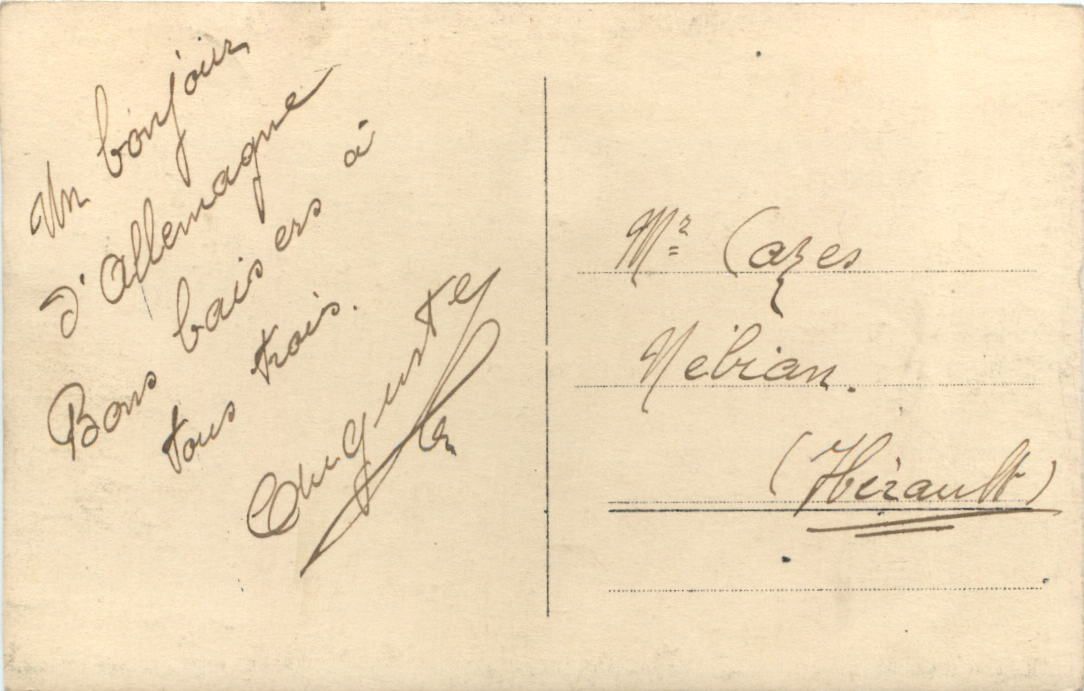 Un bonjour
d'Allemagne
Bons baisers à
tous trois.
Auguste
Mr Cazes
Nébian.
(Hérault)